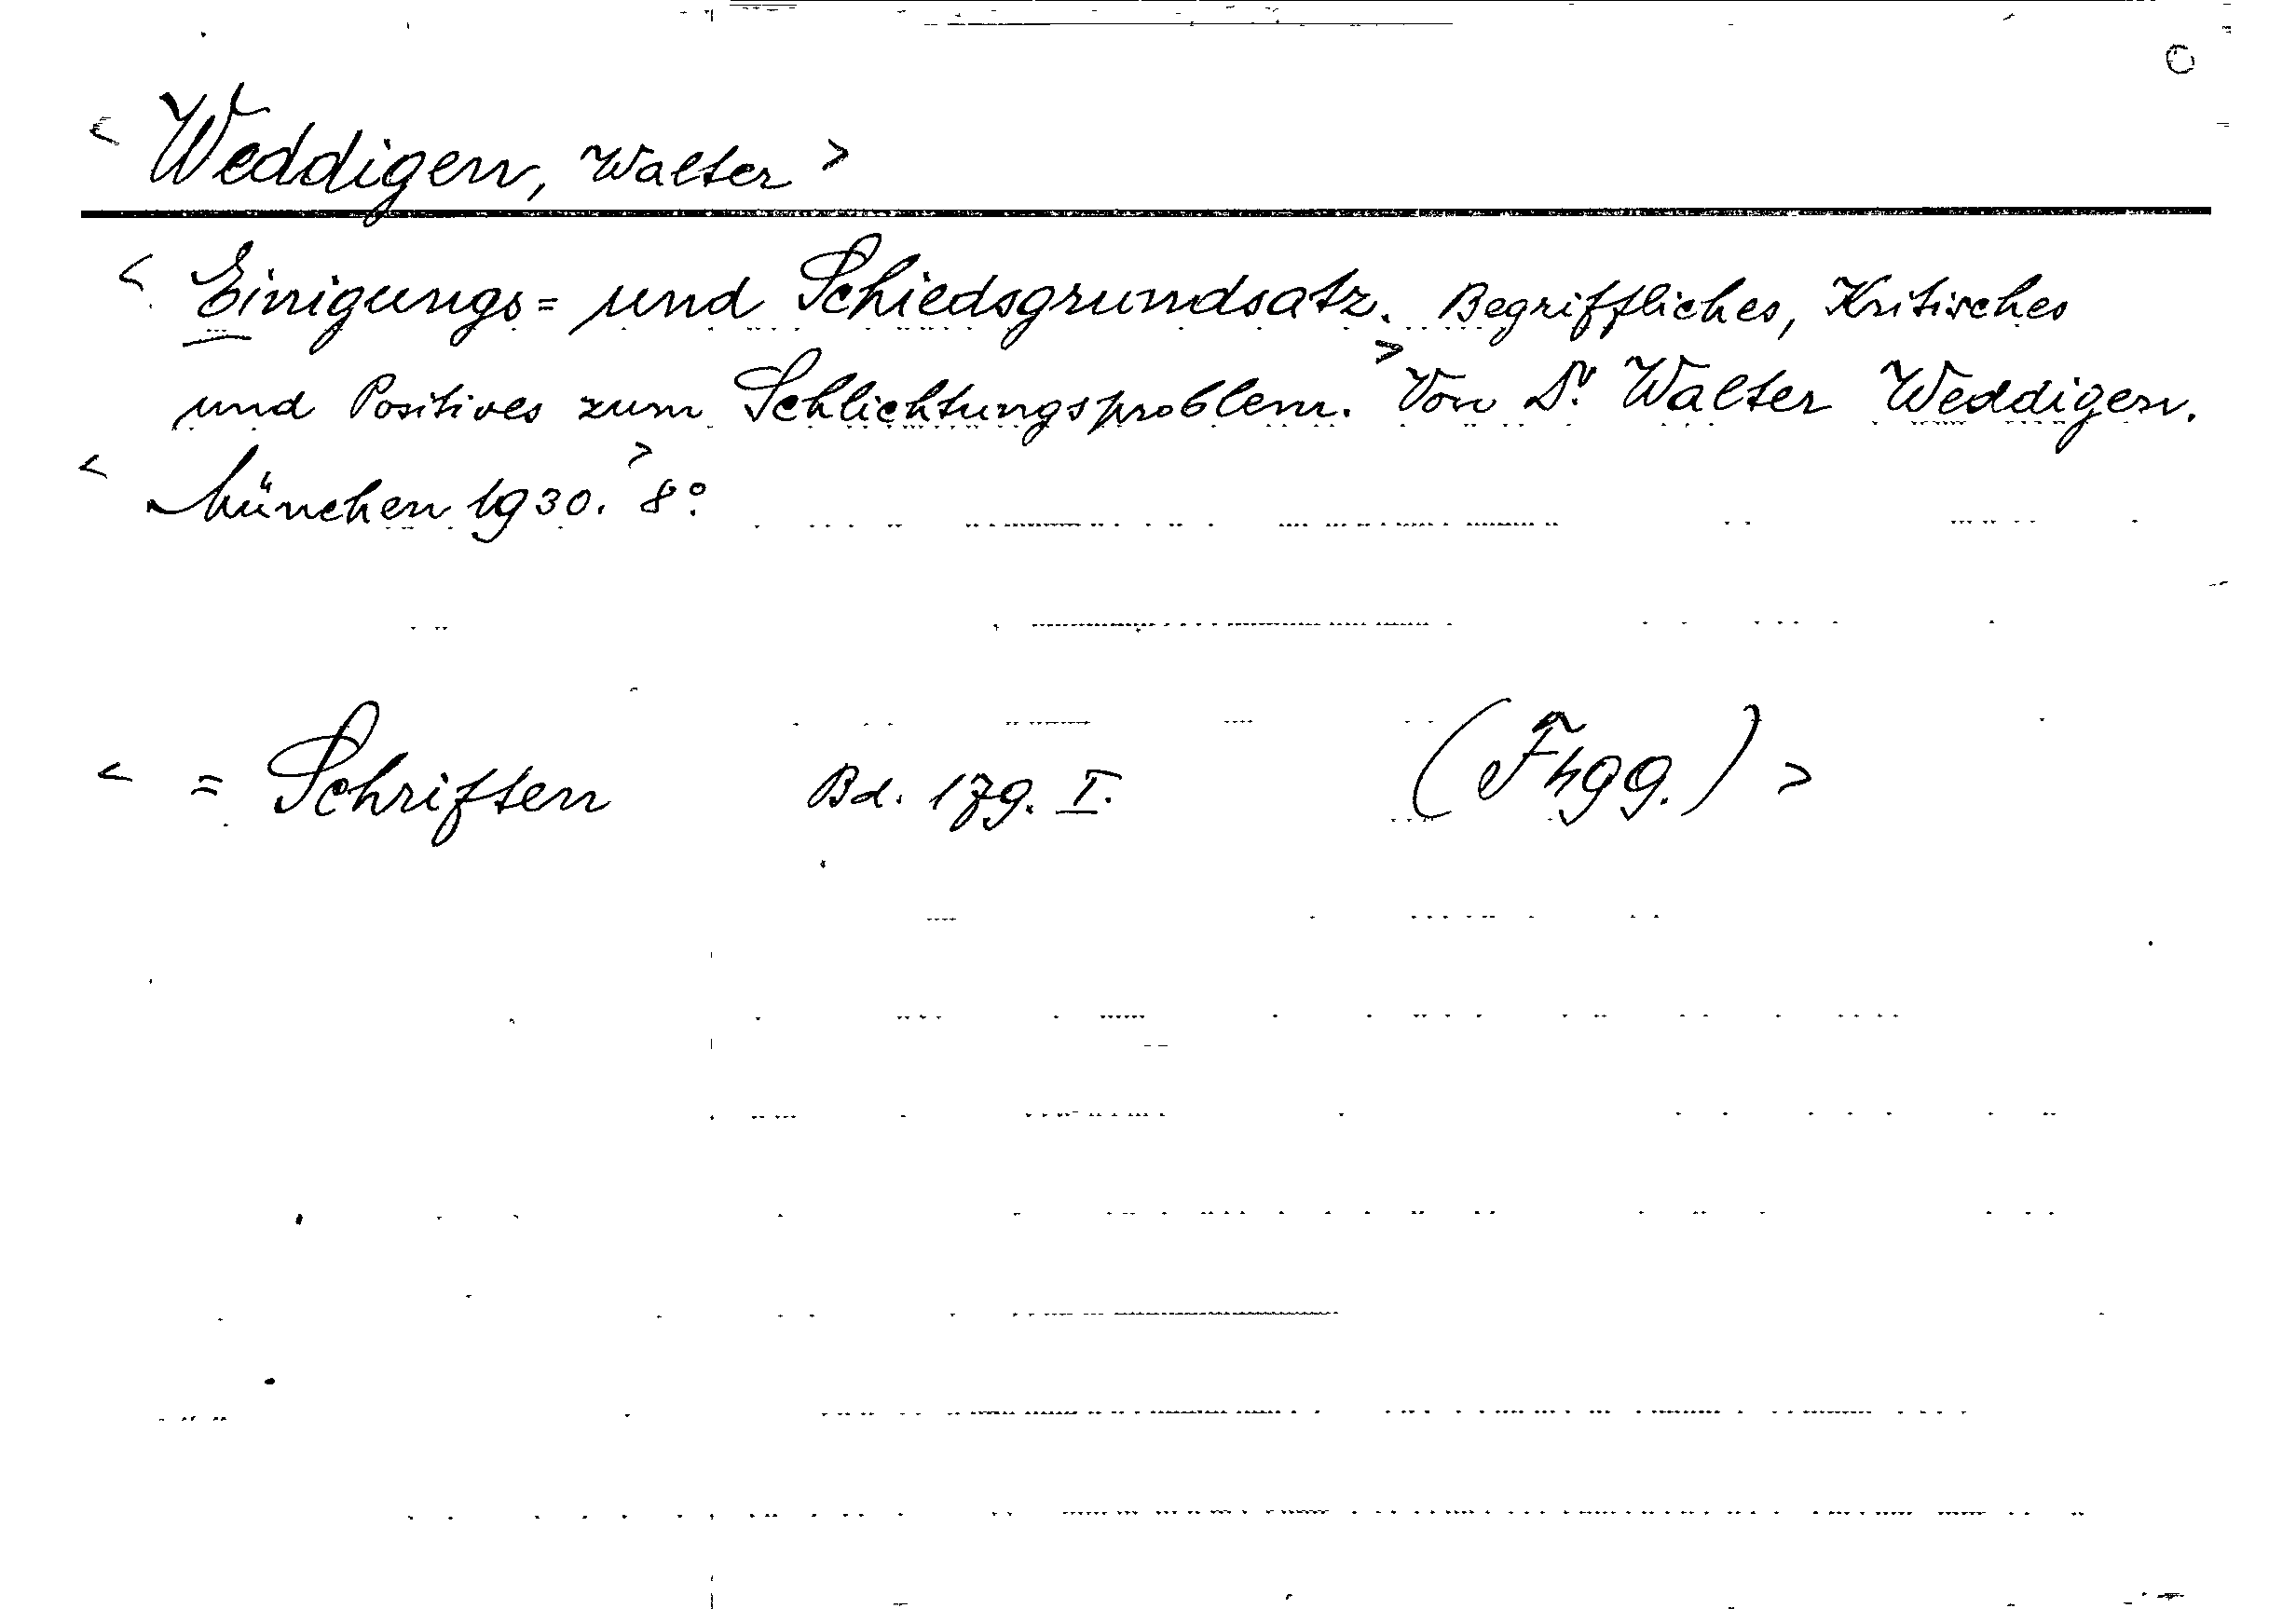 < Weddigen, Walter >
< Einigungs= und Schiedsgrundsatz. Begriffliches, Kritisches
und Positives zum Schlichtungsproblem. > Von Dr. Walter Weddigen.
< München 1930. > 8°
< = Schriften Bd. 179. I. (Fhgg.) >